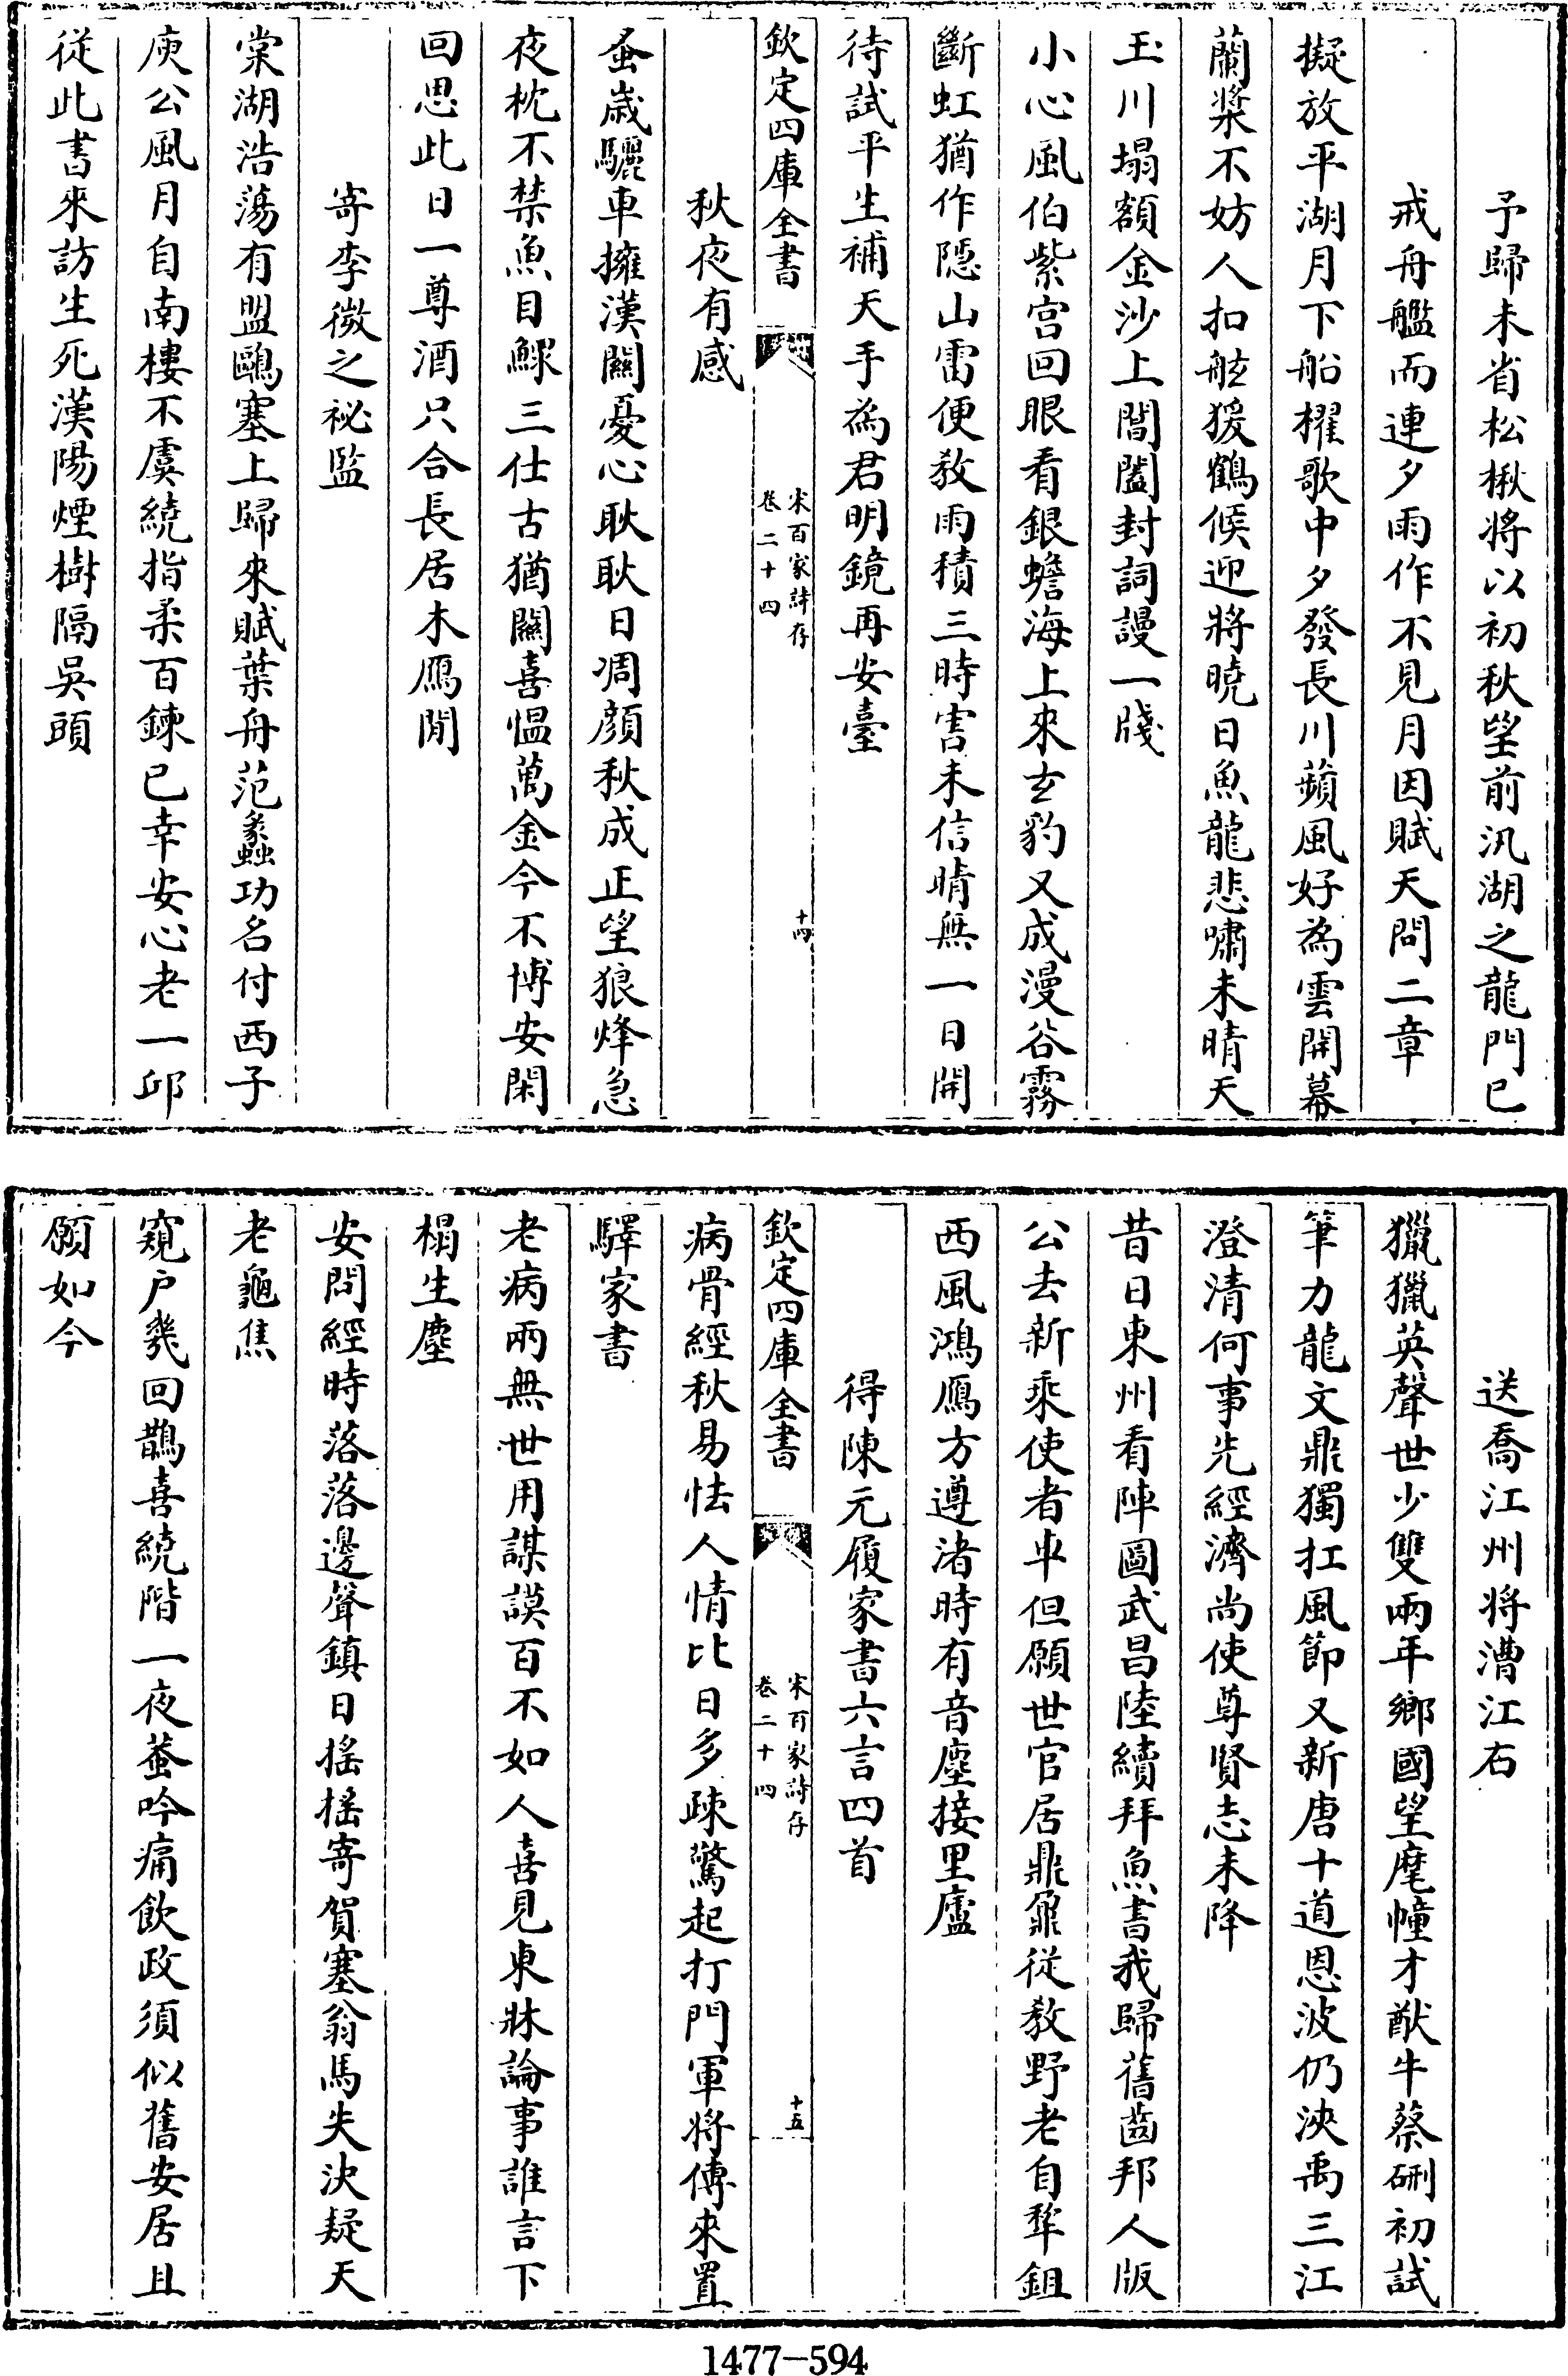 予歸未省松楸將以初秋望前汎湖之龍門已
戒舟艦而連夕雨作不見月因賦天問二章
擬放平湖月下船櫂歌中夕發長川蘋風好為雲開幕
蘭槳不妨人扣舷猨鶴候迎將曉日魚龍悲嘯未晴天
玉川塌額金沙上閶闔封詞謾一牋
小心風伯紫宫回眼看銀蟾海上來玄豹又成漫谷霧
斷虹猶作隠山雷便教雨積三時害未信晴無一日開
待試平生補天手為君明鏡再安臺
欽定四庫全書
宋百家詩存
卷二十四
十四
秋夜有感
蚤嵗驪車擁漢關憂心耿耿日凋顔秋成正望狼烽急
夜枕不禁魚目鰥三仕古猶關喜愠萬金今不博安閑
回思此日一尊酒只合長居木鴈閒
寄李微之祕監
棠湖浩蕩有盟鷗塞上歸來賦葉舟范蠡功名付西子
庾公風月自南樓不虞繞指柔百鍊已幸安心老一邱
從此書來訪生死漢陽煙樹隔吳頭
送喬江州將漕江右
獵獵英聲世少雙兩年鄉國望麾幢才猷牛蔡硎初試
筆力龍文鼎獨扛風節又新唐十道恩波仍浹禹三江
澄清何事先經濟尚使尊賢志未降
昔日東州看陣圖武昌陸續拜魚書我歸舊齒邦人版
公去新乘使者車但願世官居鼎鼐從教野老自犂鉏
西風鴻鴈方遵渚時有音塵接里廬
得陳元履家書六言四首
欽定四庫全書
宋百家詩存
卷二十四
十五
病骨經秋易怯人情比日多疎驚起打門軍將傳來置
驛家書
老病兩無世用謀謨百不如人喜見東牀論事誰言下
榻生塵
安問經時落落邊聲鎮日搖搖寄賀塞翁馬失決疑天
老龜焦
窺户幾回鵲喜繞階一夜蛩吟痛飲政須似舊安居且
願如今
1477—594